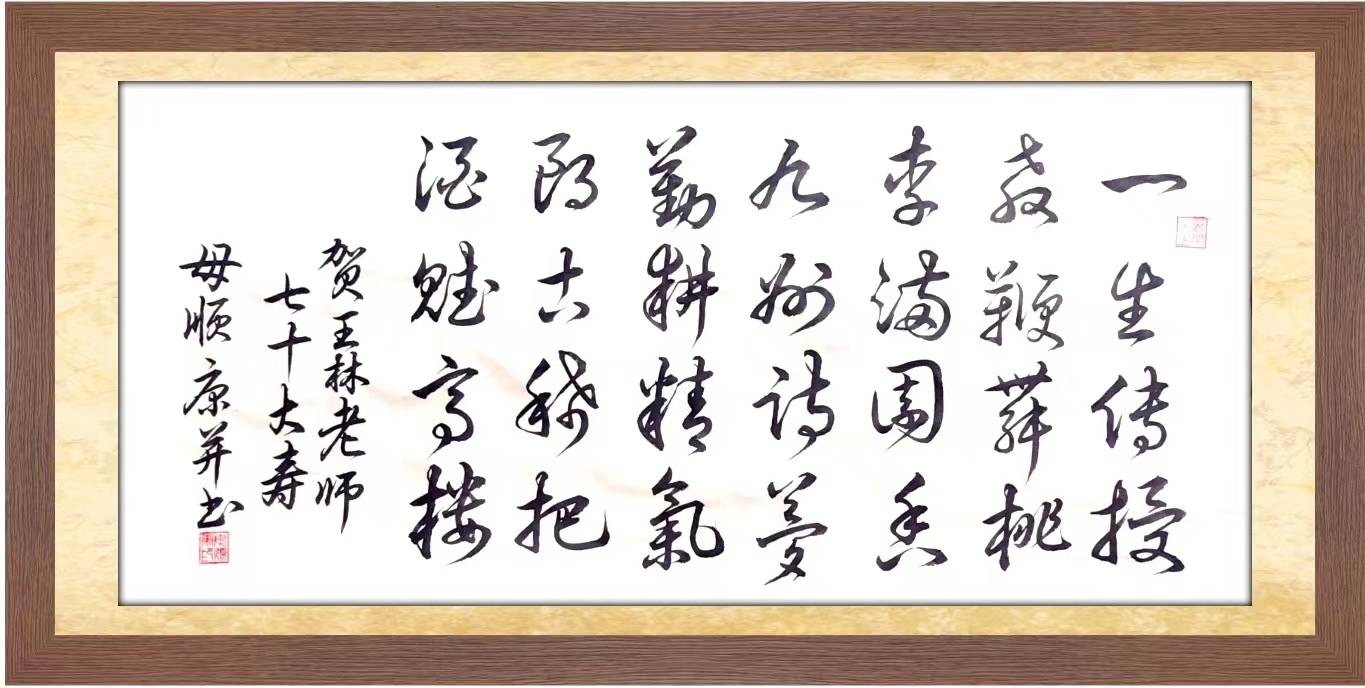 一生传授
教鞭舞桃
李满园香
九州诗梦
勤耕精气
阳古稀把
酒赋高楼
贺王林老师
七十大寿
毋顺康并书